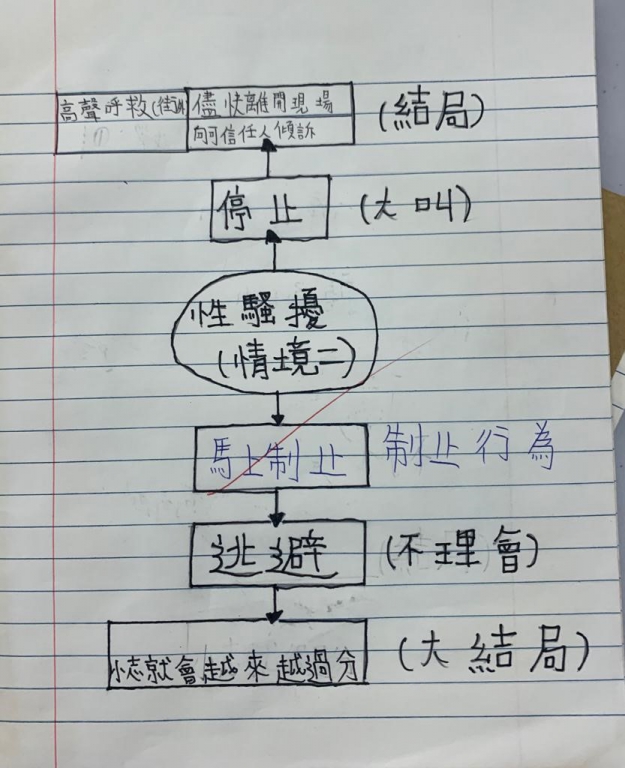 高聲呼救(街
儘快離開現場
向可信任人傾訴
(結局)
停止
(大叫)
性騷擾
(情境二)
馬上制止
制止行為
逃避
(不理會)
小志就會越來越過分
(大結局)